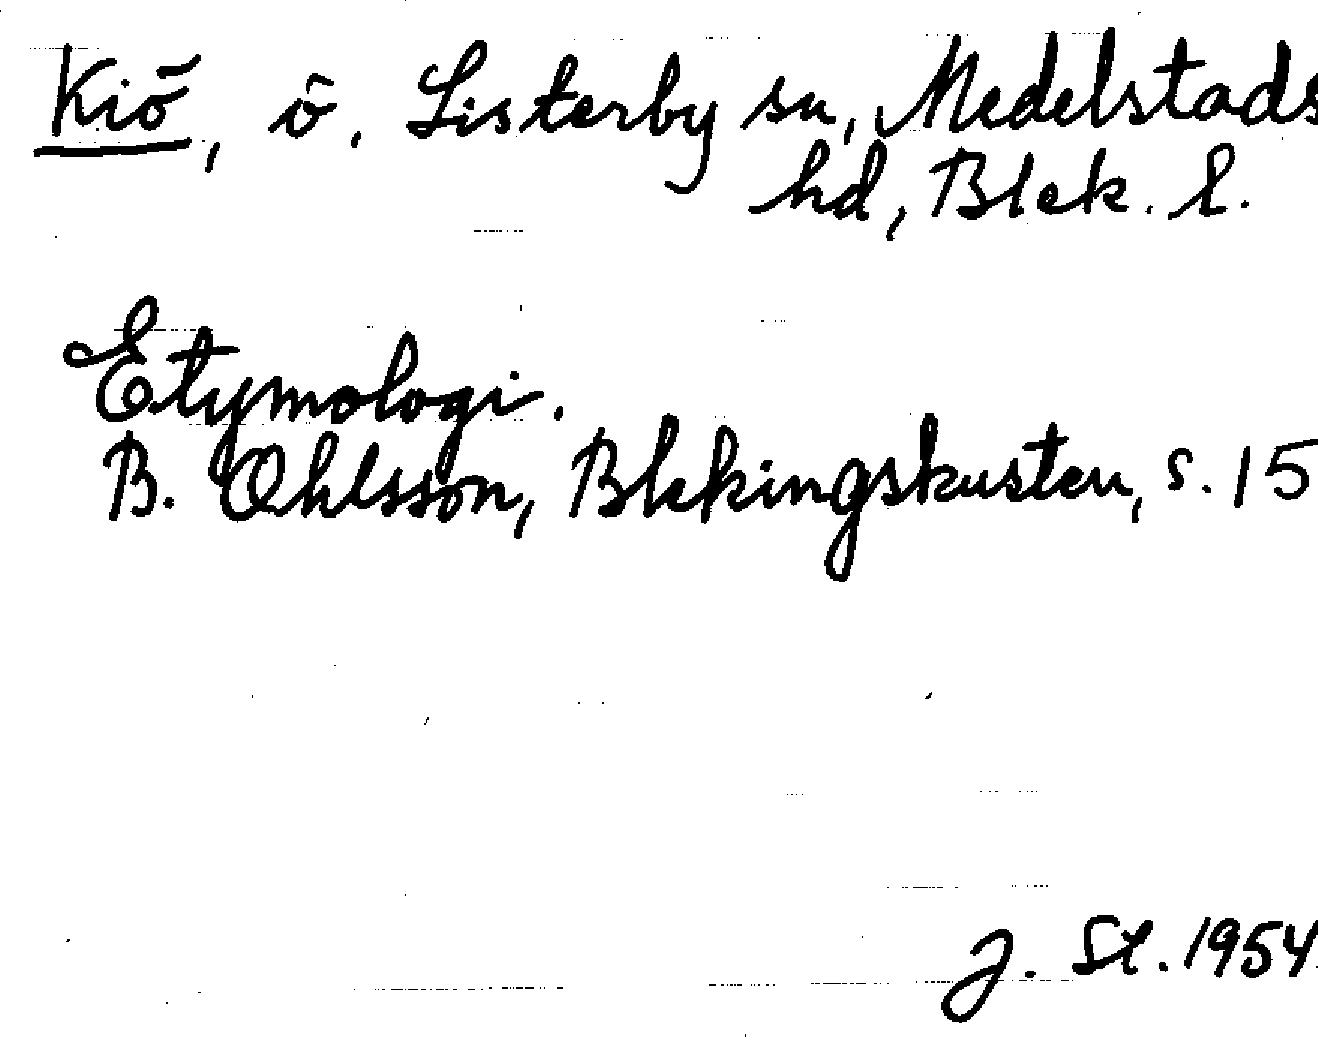 Kiö, ö, Listerby sn, Medelstads
hd, Blek. l.
Etymologi.
B. Ohlsson, Blekingskusten, s. 15
J. St. 1954